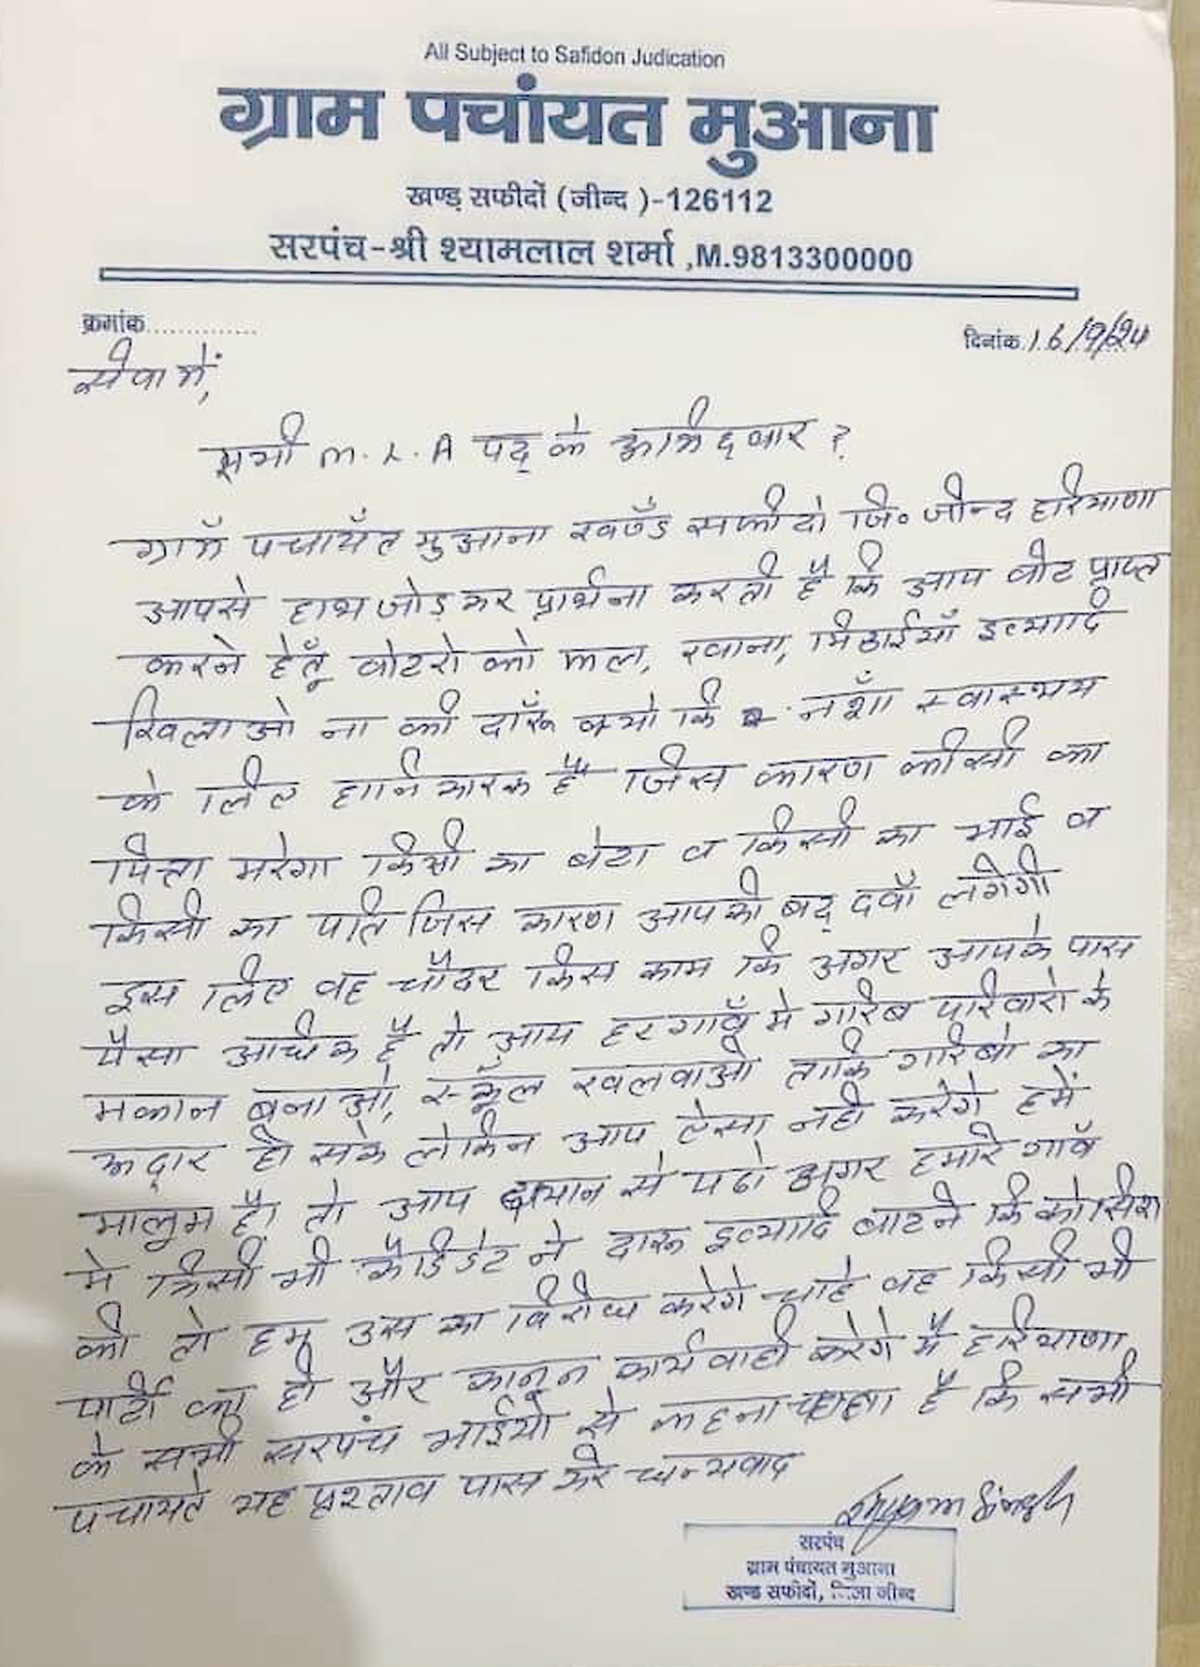 All Subject to Safidon Judication
ग्राम पचांयत मुआना
खण्ड़ सफीदों (जीन्द )-126112
सरपंच-श्री श्यामलाल शर्मा ,M.9813300000
क्रमांक..............
दिनांक.16/9/24
सेवा में,
सभी M.L.A पद् के उमिद्वार ?
गाँम पचायँत मुआना खण्डँ सफीदो जि० जीन्द हरियाणा
आपसे हाथ जोड़ कर प्रार्थना करती है कि आप वोट प्राप्त
करने हेतूँ वोटरो को फल, खाना, मिठाईयाँ इत्यादि
खिलाओ ना की दाँरू क्यो कि नशाँ स्वास्थय
के लिए हानिकारक है जिस कारण कीसी का
पिता मरेगा किसी का बेटा व किसी का भाई व
किसी का पति जिस कारण आपको बद् दवाँ लगेगी
इस लिए वह चौदर किस काम कि अगर आपके पास
पैसा अधिक है तो आप हर गाँव मे गरिब परिवारो के
मकान बनाओ, स्कूँल खलवाओ ताकि गरिबो का
उद्दार हो सके लेकिन आप ऐसा नही करेगे हमें
मालुम है। तो आप ध्यान से पढो अगर हमारे गाँव
मे किसी भी कैडिडेट ने दारू इत्यादि बाटने कि कोसिश
की तो हम उस का विरोध करेगे चाहे वह किसी भी
पार्टी का हो और कानून कार्यवाही करेगे मै हरियाणा
के सभी सरपंच भाईयो से कहना चाहता है कि सभी
पचायते यह प्रस्ताव पास करे धन्यवाद
Shyam Singh
सरपंच
ग्राम पंचायत मुआना
खण्ड सफीदों, जिला जीन्द